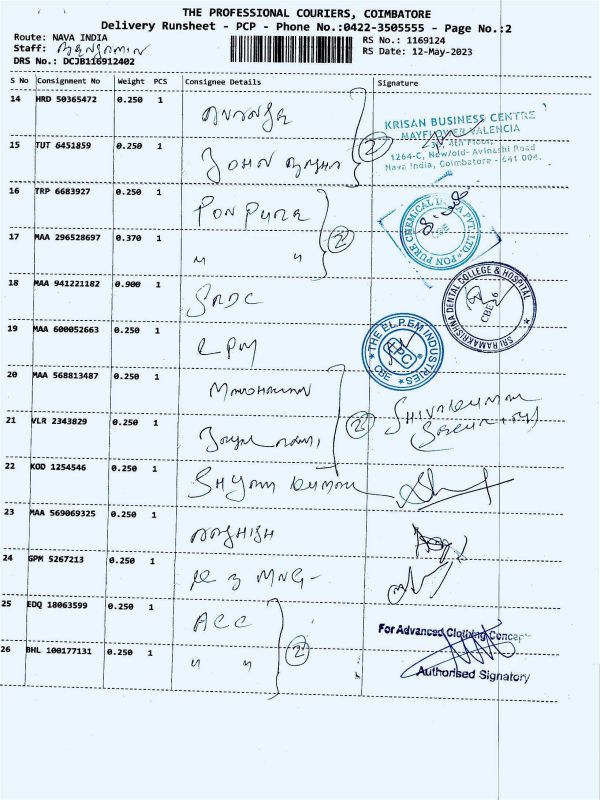 THE PROFESSIONAL COURIERS, COIMBATORE
Delivery Runsheet - PCP - Phone No.:0422-3505555 - Page No.:2
Route: NAVA INDIA
RS No.: 1169124
Staff:
RS Date: 12-May-2023
DRS No.: DCJB116912402
S No Consignment No Weight PCS Consignee Details Signature
14 HRD 50365472 0.250 1
KRISAN BUSINESS CENTRE
MAYFLOWER VALENCIA
4th Floor,
1264-C, New/old- Avinashi Road
Nava India, Coimbatore - 641 004.
15 TUT 6451859 0.250 1 JOHN ②
16 TRP 6683927 0.250 1 PON PURE
PON PURE CHEMICAL INDIA PVT. LTD. CBE
17 MAA 296528697 0.370 1 " " ②
18 MAA 941221182 0.900 1 SRDC
SRI RAMAKRISHNA DENTAL COLLEGE & HOSPITAL CBE
19 MAA 600052663 0.250 1 EPM
THE EL.P.EM INDUSTRIES CBE
20 MAA 568813487 0.250 1 MANOHARAN
21 VLR 2343829 0.250 1 ② SHIVAKUMAR
22 KOD 1254546 0.250 1 SHYAM KUMAR
23 MAA 569069325 0.250 1
24 GPM 5267213 0.250 1
25 EDQ 18063599 0.250 1 ACC
For Advanced Clothing Concepts
26 BHL 100177131 0.250 1 " " ②
Authorised Signatory